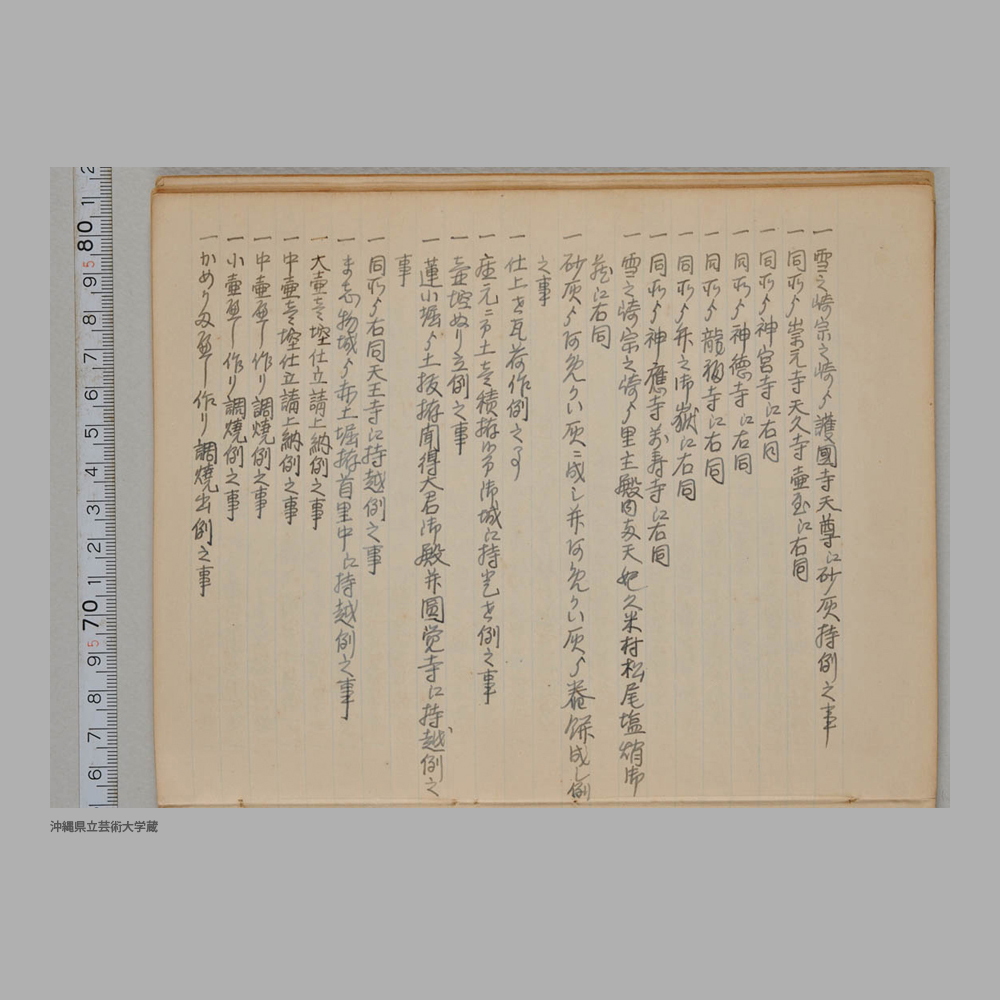 一雪之崎宗之崎ゟ護國寺天尊江砂灰持例之事
一同所ゟ崇元寺天久寺壷屋江右同
一同所ゟ神宮寺江右同
一同所ゟ神德寺江右同
一同所ゟ龍福寺江右同
一同所ゟ弁之御嶽江右同
一同所ゟ神應寺万寿寺江右同
一雪之崎宗之崎ゟ里主殿内天妃久米村松尾塩焇御
蔵江右同
一砂灰ゟ灰ニ成し并灰ゟ餅成し例
之事
一仕上せ瓦荷作例之事
一座元ニ而土を積御城江持せ例之事
一壷埦ぬり立例之事
一蓮小堀ゟ土拔聞得大君御殿并圓覚寺江持越例之
事
一同所ゟ右同天王寺江持越例之事
一物城ゟ赤土堀首里中江持越例之事
一大壷を埦仕立請上納例之事
一中壷を埦仕立請上納例之事
一中壷作り調燒例之事
一小壷作り調燒例之事
一かめり作り調燒出例之事
2
1
80
5
9
8
7
6
5
4
3
2
1
70
5
9
8
7
6
沖縄県立芸術大学蔵